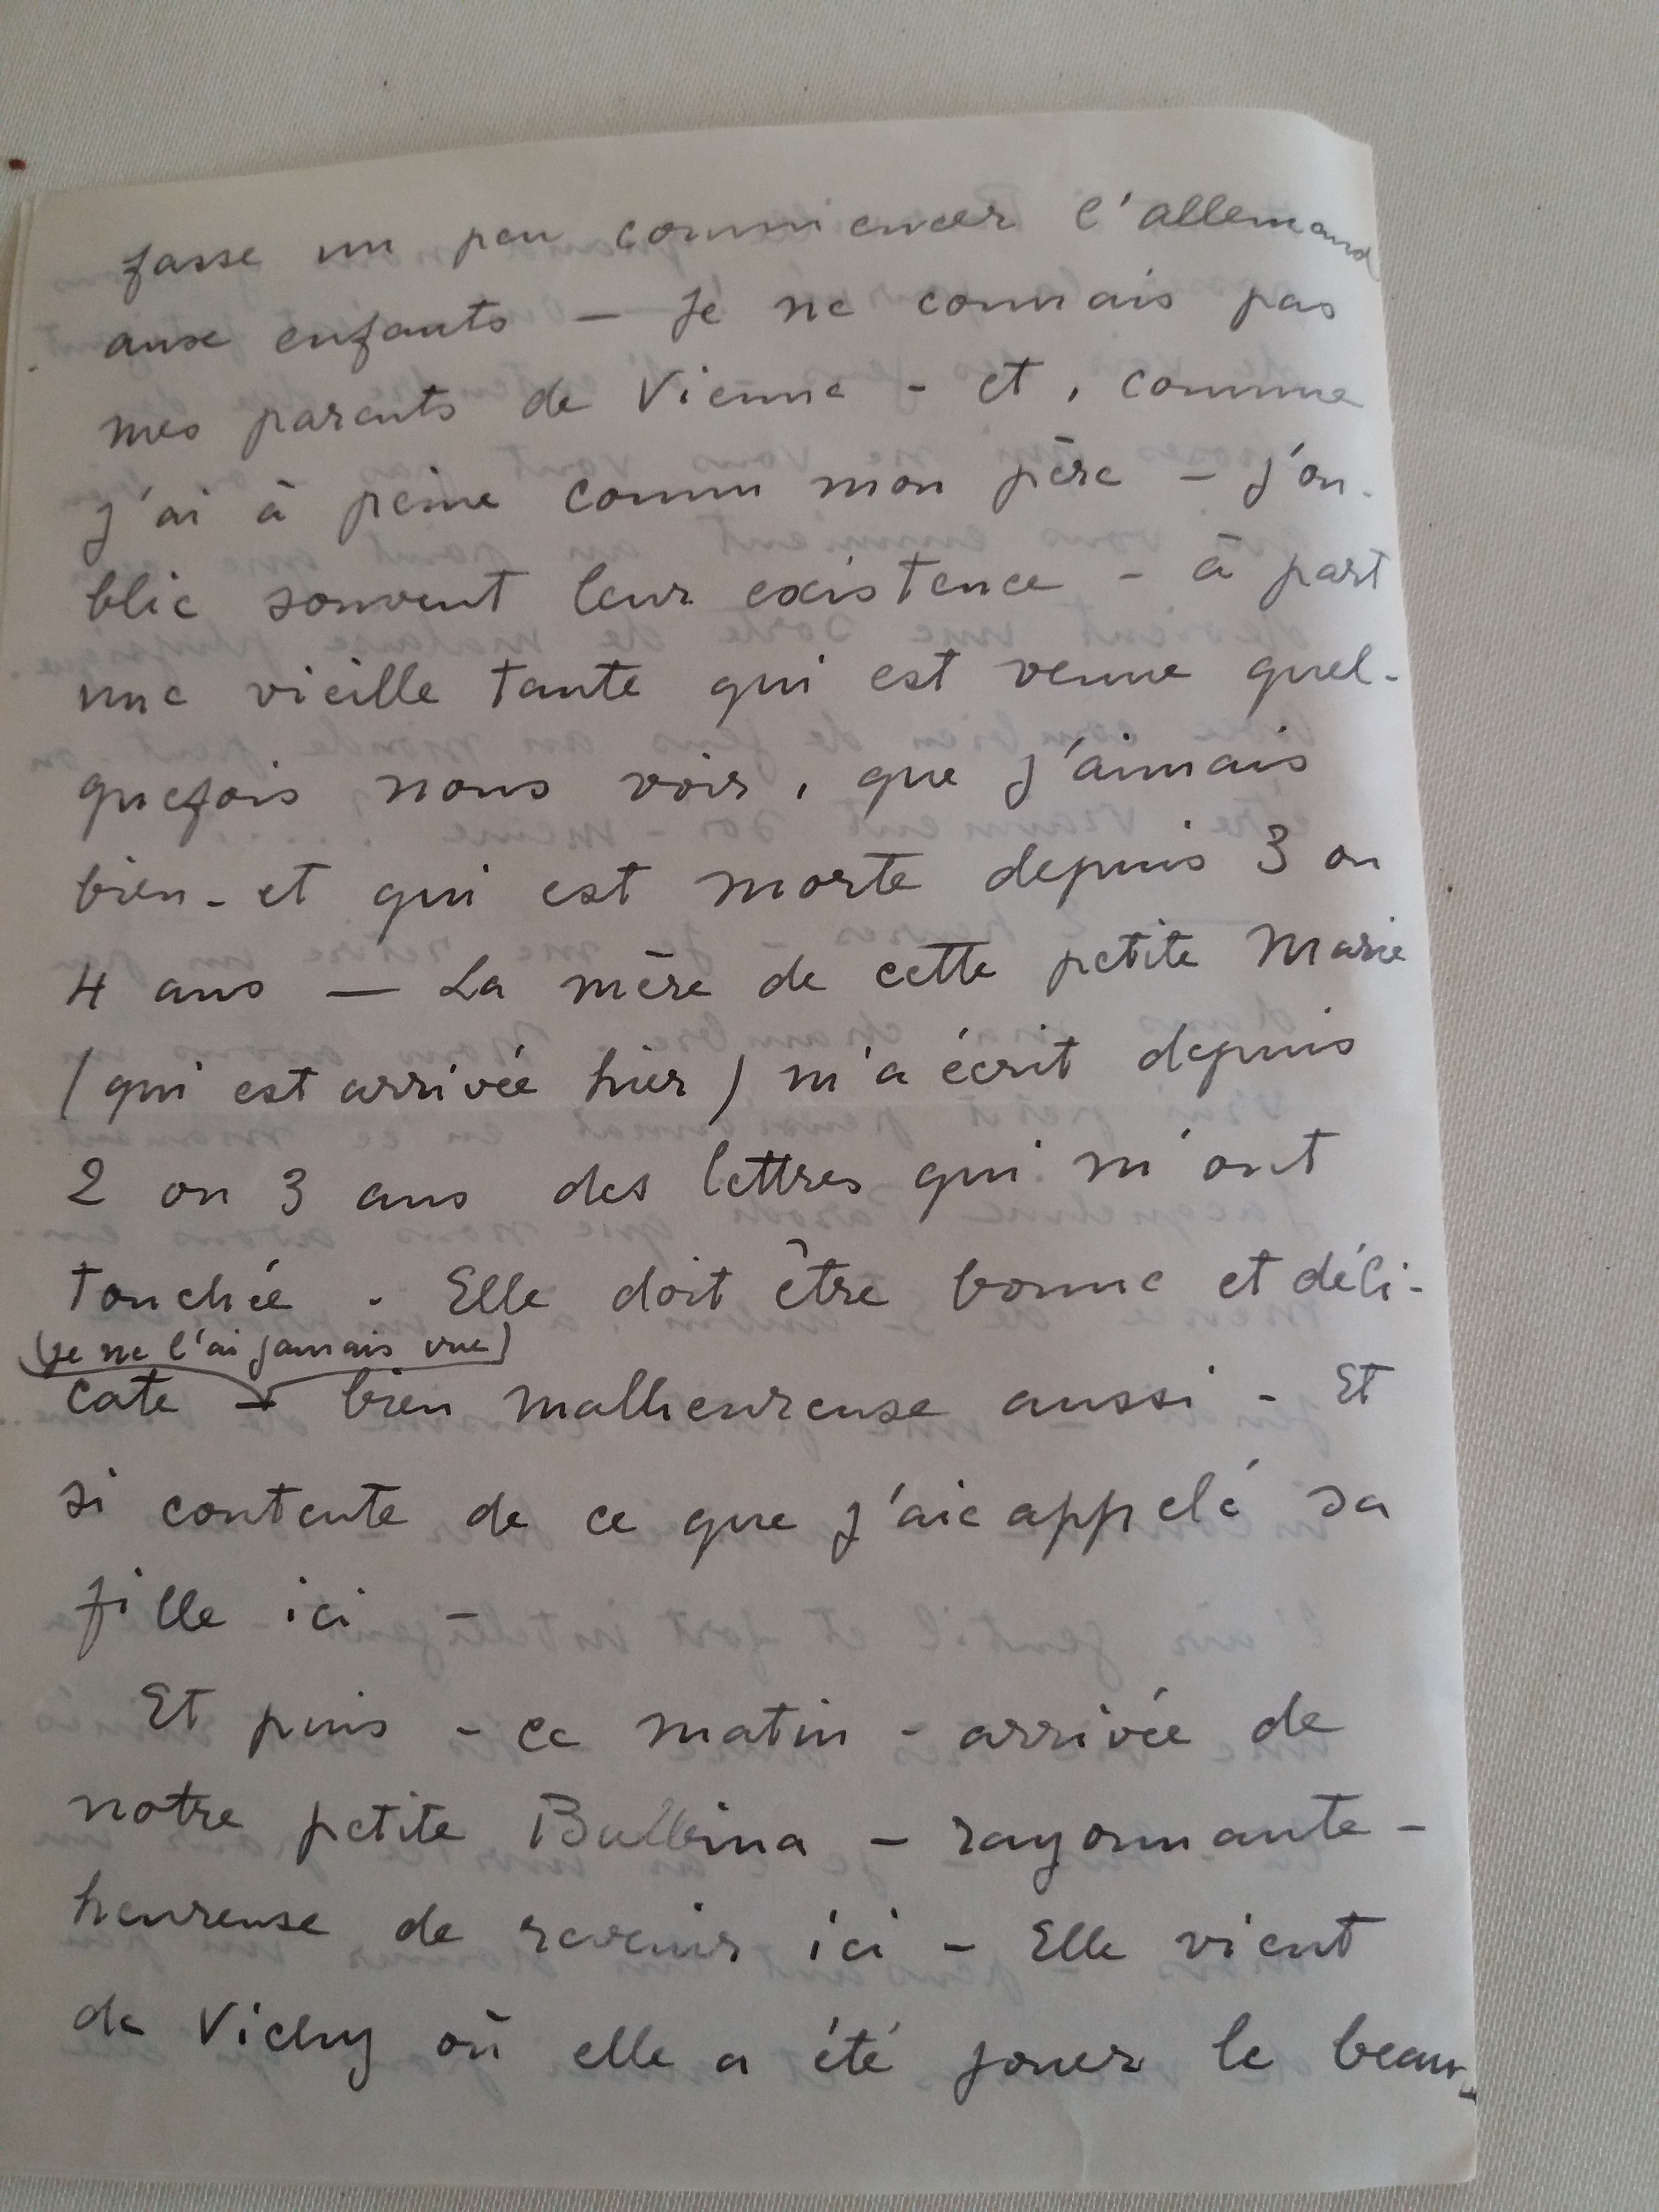 fasse un peu commencer l'allemand
aux enfants — Je ne connais pas
mes parents de Vienne - et, comme
j'ai à peine connu mon père - j'ou-
blie souvent leur existence - à part
une vieille tante qui est venue quel-
quefois nous voir, que j'aimais
bien - et qui est morte depuis 3 ou
4 ans — La mère de cette petite Marie
(qui est arrivée hier) m'a écrit depuis
2 ou 3 ans des lettres qui m'ont
touchée. Elle doit être bonne et déli-
(je ne l'ai jamais vue)
cate - bien malheureuse aussi - Et
si contente de ce que j'aie appelé sa
fille ici -
Et puis - ce matin - arrivée de
notre petite - rayonnante -
heureuse de revenir ici - Elle vient
de Vichy où elle a été jouer le beau-